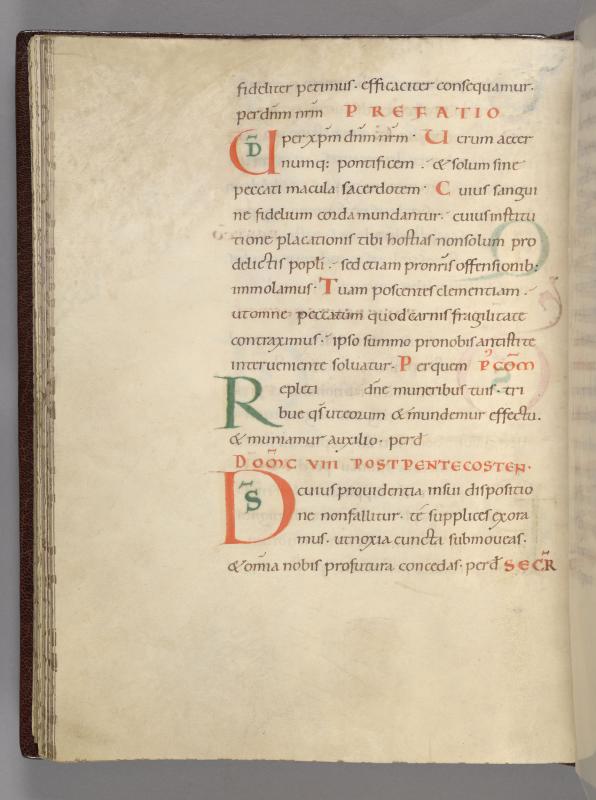 fideliter petimus · efficaciter consequamur ·
per dñm nr̃m PREFATIO
UD̃ per xp̃m dñm nr̃m · Uerum aeter
numq: pontificem · & solum sine
peccati macula sacerdotem · Cuius sangui
ne fidelium corda mundantur · cuius institu
tione placationis tibi hostias non solum pro
delictis popli · sed etiam pro nr̃is offensionib:
immolamus · Tuam poscentes clementiam ·
ut omne peccatum quod carnis fragilitate
contraximus · ipso summo pro nobis antistite
interueniente soluatur · Per quem P' COM̃
Repleti dñe muneribus tuis · tri
bue qs̃ ut eorum & mundemur effectu ·
& muniamur auxilio · perd
DOM̃C VIII POST PENTECOSTEN ·
DS̃ cuius prouidentia in sui dispositio
ne non fallitur · te supplices exora
mus · ut noxia cuncta submoueas ·
& om̃ia nobis profutura concedas · perd SECR̃